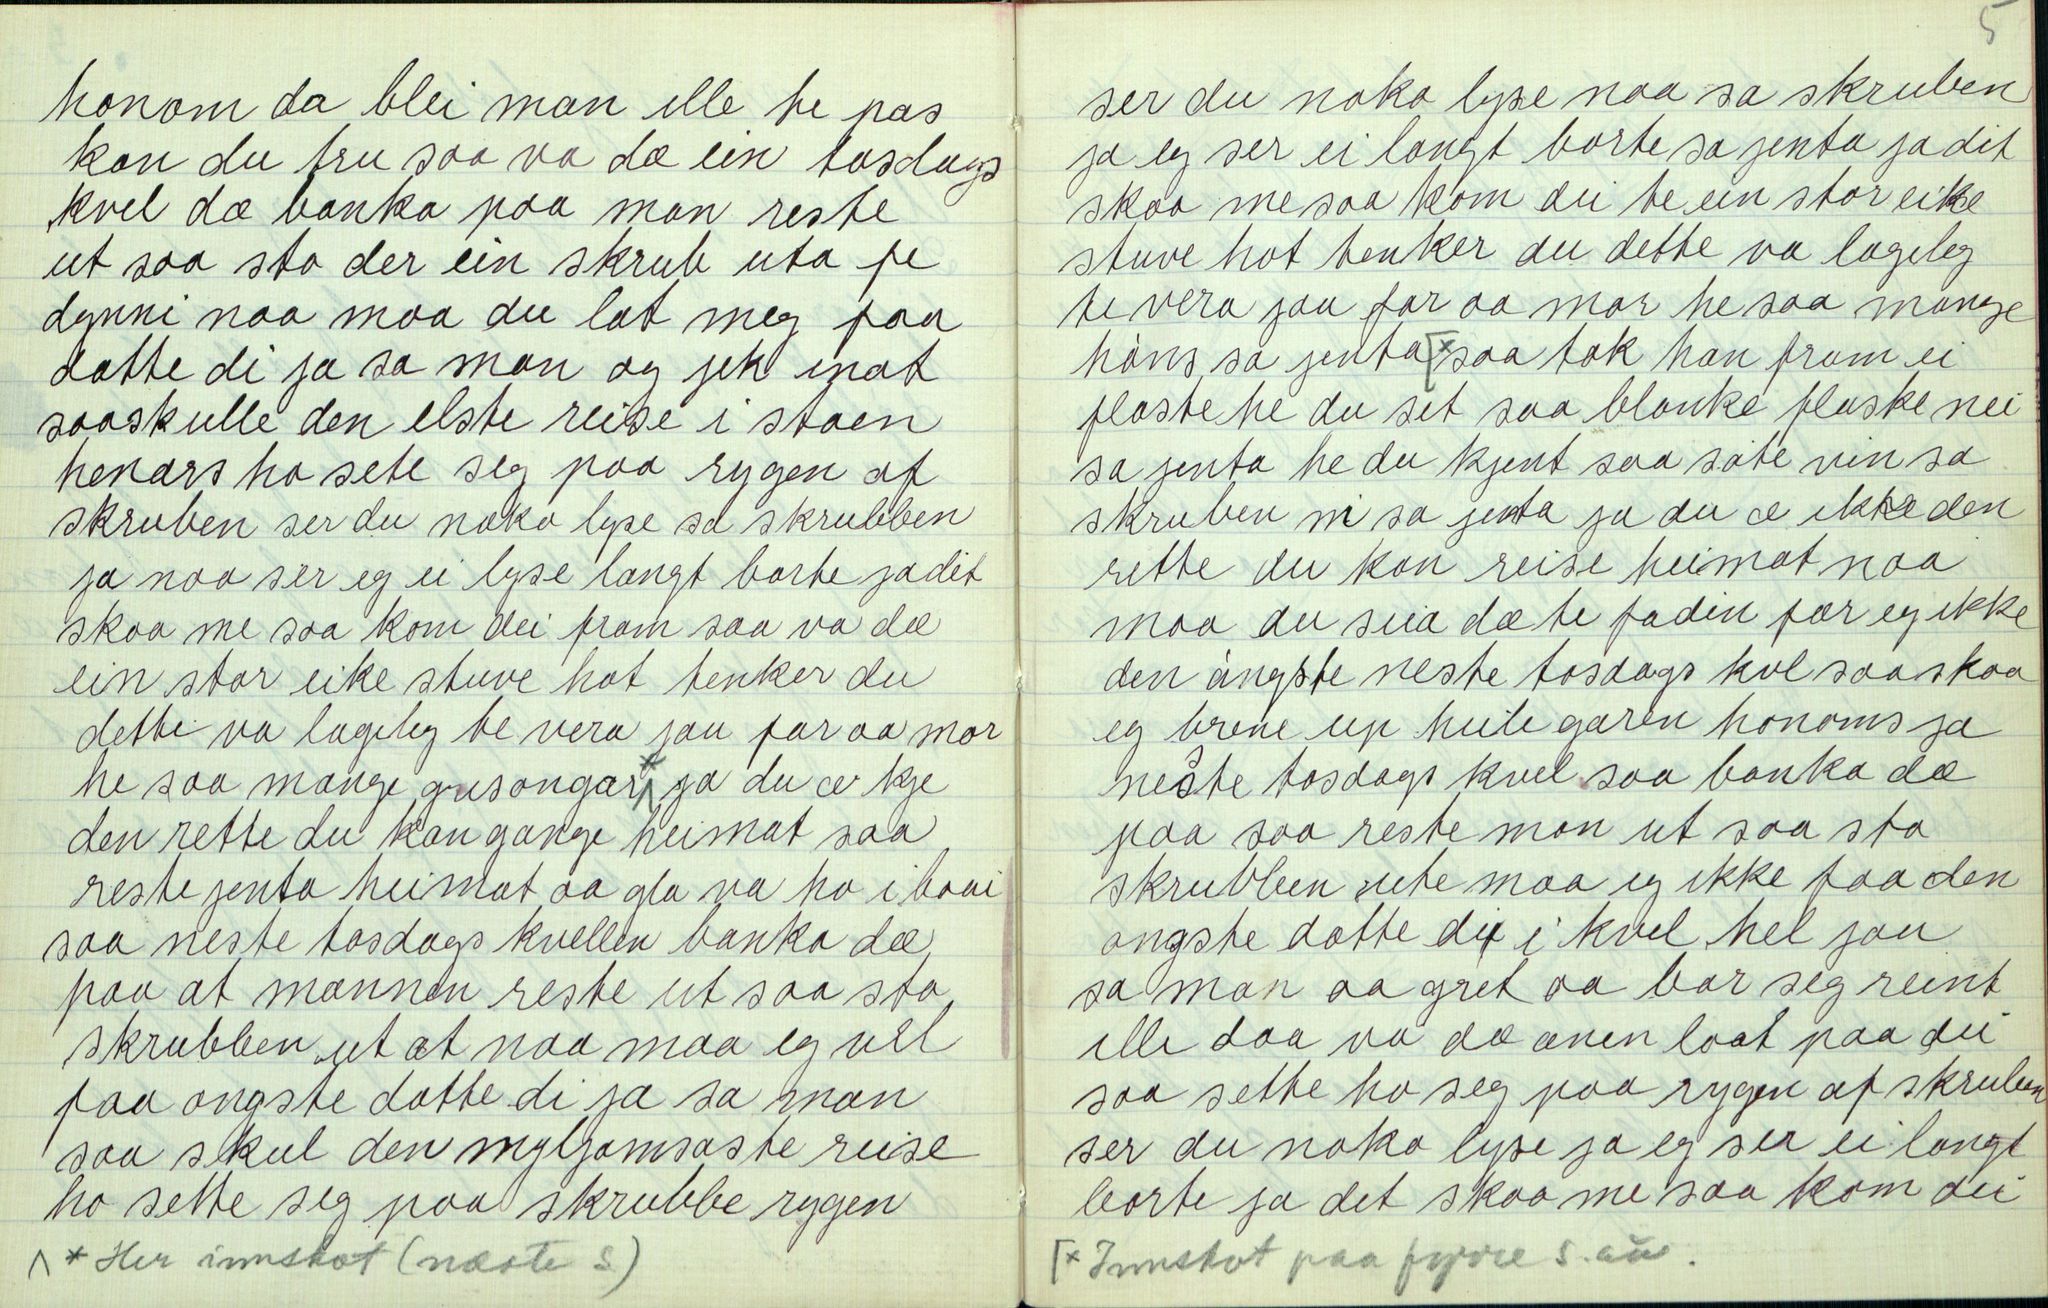 honom da blei man ille te pas
kan du tru saa va dæ ein tosdags
kvel dæ banka paa man reste
ut saa sto der ein skrub uta fe
dynni naa maa du lat meg faa
datte di ja sa man og jek inat
saaskulle den elste reise i staen
henars ho sete seg paa rygen af
skruben ser du noko lyse sa skrubben
ja naa ser eg ei lyse langt borte ja dit
skaa me saa kom dei fram saa va dæ
ein stor eike stuve hot tenker du
dette va lageleg te vera jau far aa mor
he saa mange grisongar ja du æ kje
den rette du kan gange heimat saa
reste jenta heimat aa gla va ho i baai
saa neste tosdags kvellen banka dæ
paa at mannen reste ut saa sto
skrubben ut at naa maa eg vel
faa ongste datte di ja sa man
saa skul den myljamsaste reise
ho sette seg paa skrubbe rygen
^ * Her innskot (næste S)
5
ser du noko lyse naa sa skruben
ja eg ser ei langt borte sa jenta ja dit
skaa me saa kom dei te ein stor eike
stuve hot tenker du dette va lageleg
te vera jau far aa mor he saa mange
håns sa jenta [* saa tok han fram ei
flaste he du set saa blanke flaske nei
sa jenta he du kjent saa søte vin sa
skruben ni sa jenta ja du æ ikke den
rette du kan reise heimat naa
maa du seia dæ te fadin faer eg ikke
den ångste neste tosdags kvel saa skaa
eg brene up heile garen honoms ja
neste tosdags kvel saa banka dæ
paa saa reste man ut saa sto
skrubben ute maa eg ikke faa den
ongste datte di i kvel hel jau
sa man aa gret aa bar seg reint
ille daa va dæ anen laat paa dei
saa sette ho seg paa rygen af skruben
ser du noko lyse ja eg ser ei langt
borte ja det skaa me saa kom dei
[* Innskot paa fyrre S.